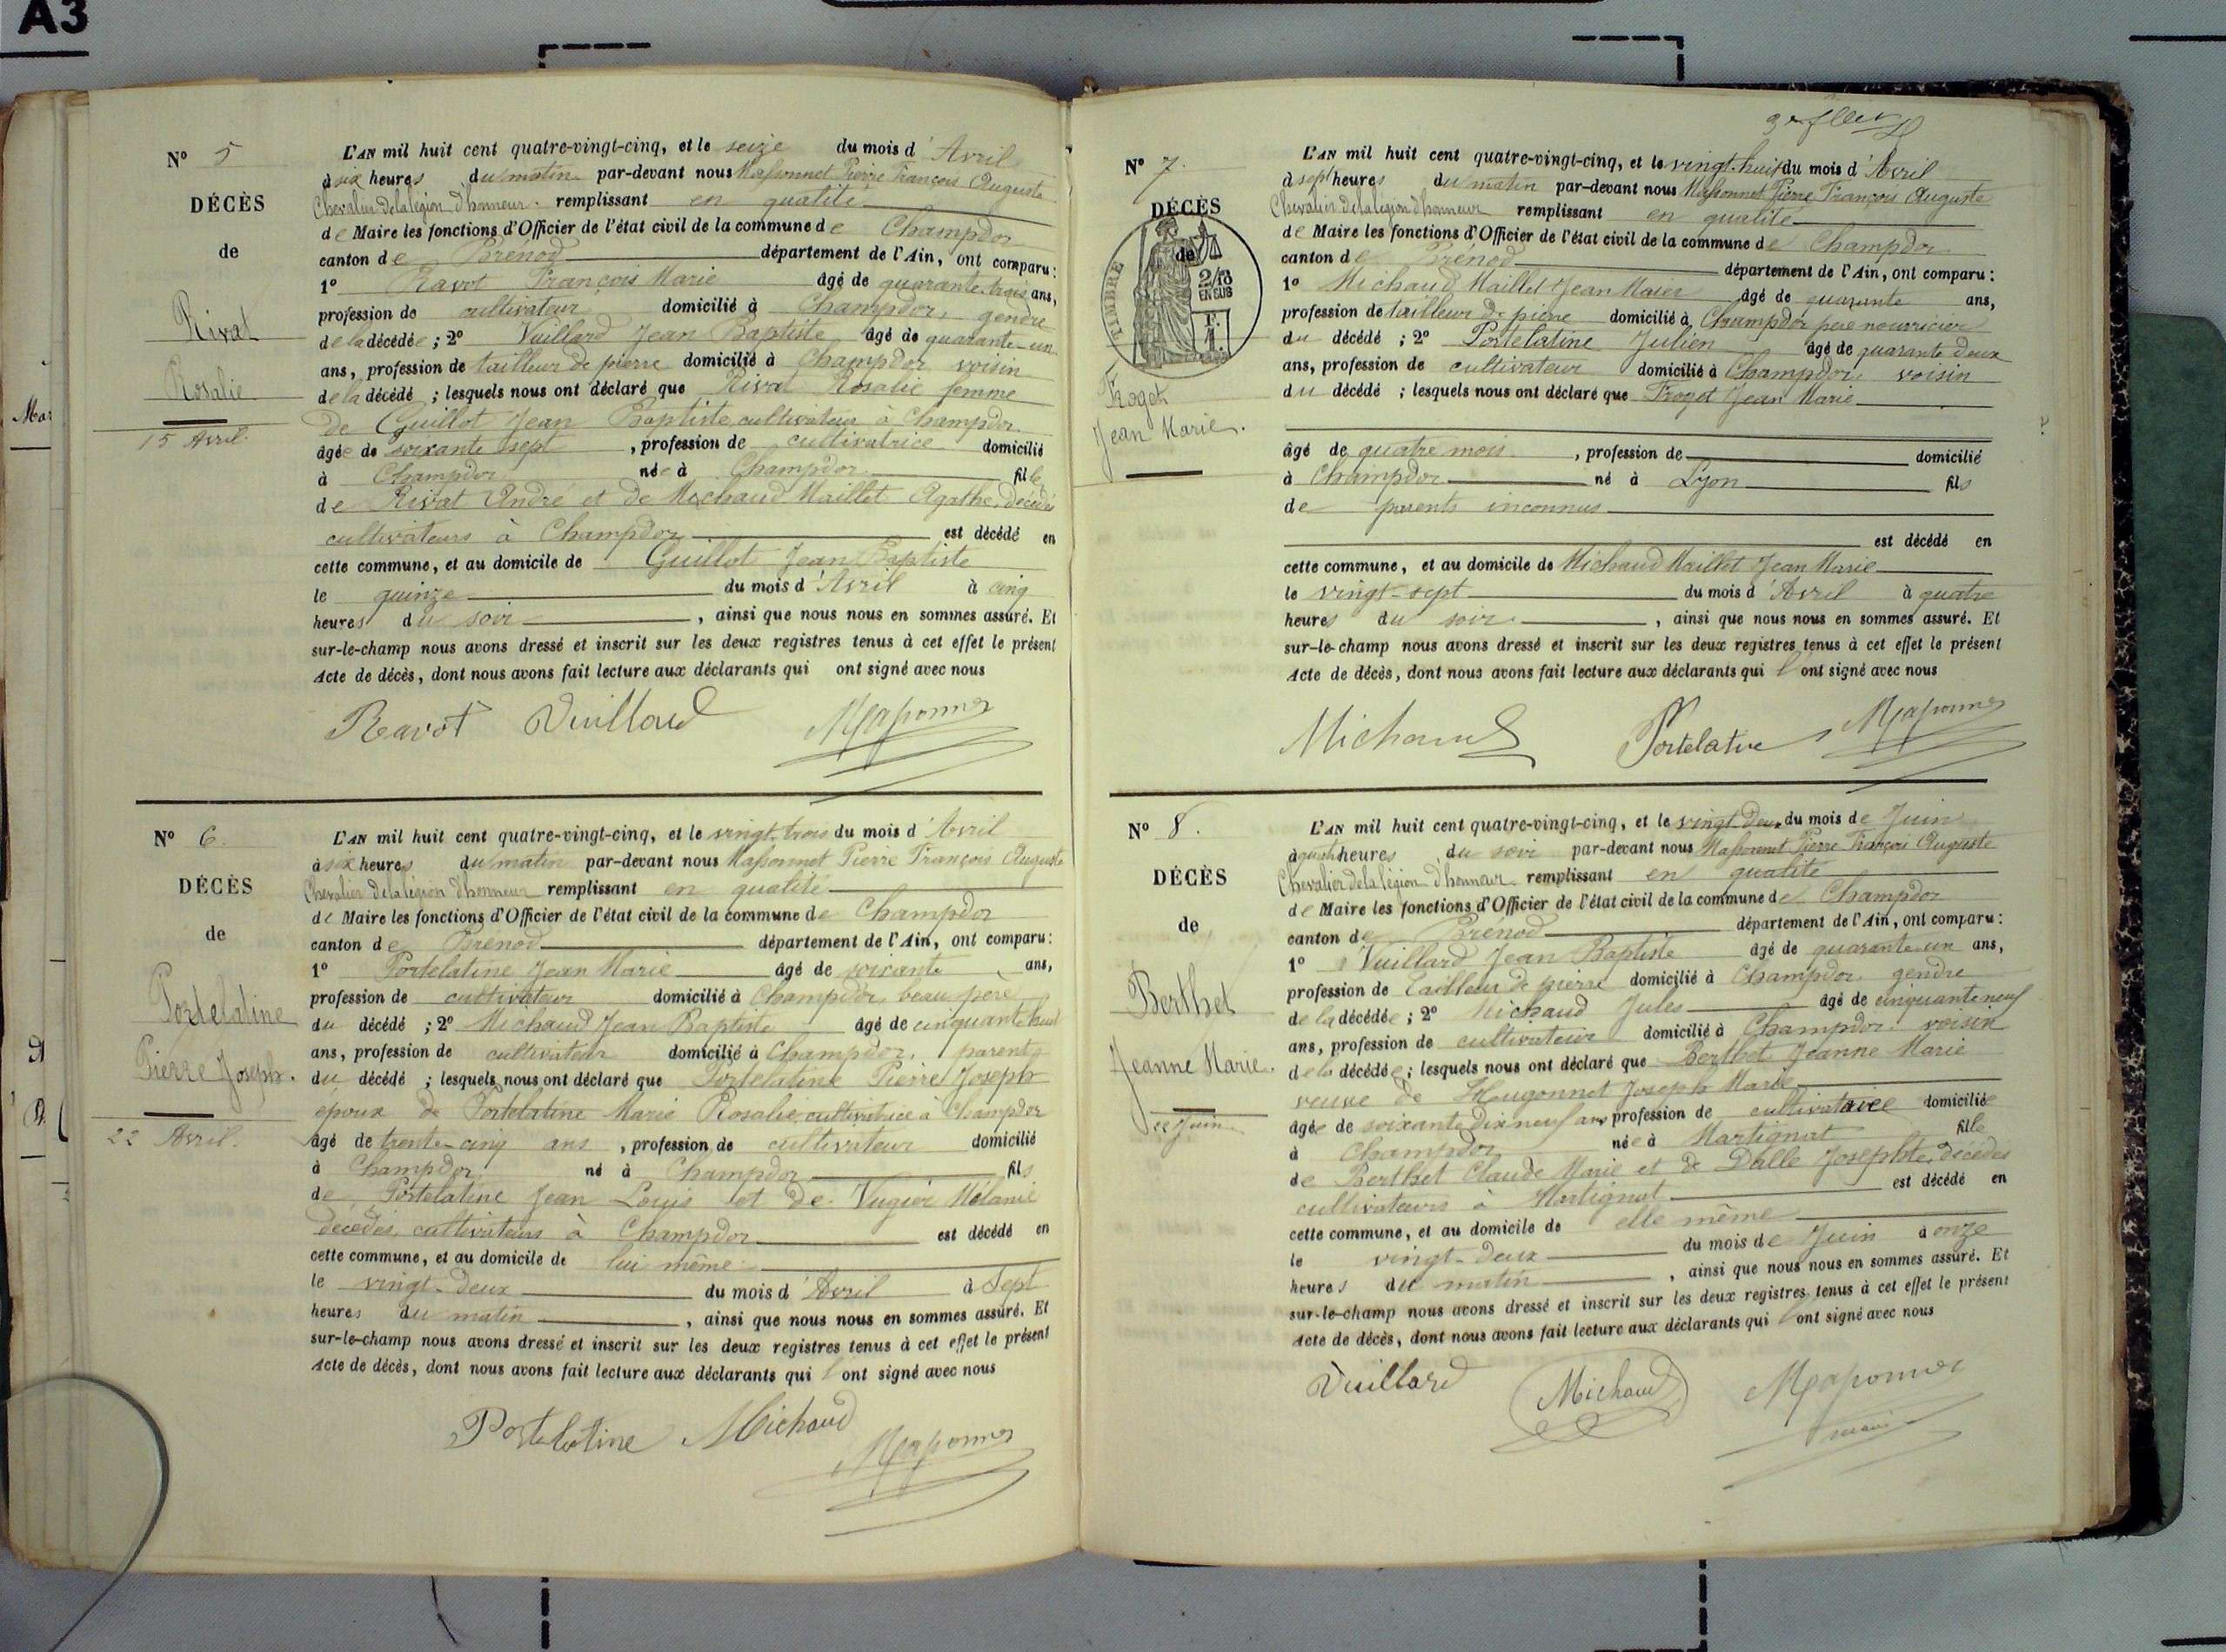 A3
Nº 5
DÉCÈS
de
Rival
Rosalie
15 Avril.
L'AN mil huit cent quatre-vingt-cinq, et le seize du mois d'Avril
à six heures du matin par-devant nous Massonnet Pierre François Auguste
Chevalier de la légion d'honneur remplissant en qualité
de Maire les fonctions d'Officier de l'état civil de la commune de Champdor
canton de Brénod département de l'Ain, ont comparu :
1º Ravot François Marie âgé de quarante-trois ans,
profession de cultivateur domicilié à Champdor, gendre
de la décédée ; 2º Vuillard Jean Baptiste âgé de quarante-un
ans, profession de tailleur de pierre domicilié à Champdor voisin
de la décédé ; lesquels nous ont déclaré que Rival Rosalie femme
de Guillot Jean Baptiste cultivateur à Champdor
âgée de soixante sept , profession de cultivatrice domicilié
à Champdor née à Champdor fille
de Rivat André et de Michaud Maillet Agathe, décédés
cultivateurs à Champdor est décédé en
cette commune, et au domicile de Guillot Jean Baptiste
le quinze du mois d'Avril à cinq
heures du soir , ainsi que nous nous en sommes assuré. Et
sur-le-champ nous avons dressé et inscrit sur les deux registres tenus à cet effet le présent
Acte de décès, dont nous avons fait lecture aux déclarants qui ont signé avec nous
Ravot Vuillard Massonnet
Nº 6.
DÉCÈS
de
Portelatine
Pierre Joseph.
22 Avril.
L'AN mil huit cent quatre-vingt-cinq, et le vingt-trois du mois d'Avril
à six heures du matin par-devant nous Massonnet Pierre François Auguste
Chevalier de la légion d'honneur remplissant en qualité
de Maire les fonctions d'Officier de l'état civil de la commune de Champdor
canton de Brénod département de l'Ain, ont comparu :
1º Portelatine Jean Marie âgé de soixante ans,
profession de cultivateur domicilié à Champdor, beau père
du décédé ; 2º Michaud Jean Baptiste âgé de cinquante huit
ans, profession de cultivateur domicilié à Champdor, parent
du décédé ; lesquels nous ont déclaré que Portelatine Pierre Joseph
epoux de Portelatine Marie Rosalie, cultivatrice à Champdor
âgé de trente-cinq ans , profession de cultivateur domicilié
à Champdor né à Champdor fils
de Portelatine Jean Louis et de Mélanie
décédés, cultivateurs à Champdor est décédé en
cette commune, et au domicile de lui même
le vingt-deux du mois d'Avril à Sept
heures du matin , ainsi que nous nous en sommes assuré. Et
sur-le-champ nous avons dressé et inscrit sur les deux registres tenus à cet effet le présent
Acte de décès, dont nous avons fait lecture aux déclarants qui l'ont signé avec nous
Portelatine Michaud Massonnet
Nº 7.
DÉCÈS
de
TIMBRE
2/10
EN SUS
Froget
Jean Marie.
L'AN mil huit cent quatre-vingt-cinq, et le vingt-huit du mois d'Avril
à sept heures du matin par-devant nous Massonnet Pierre François Auguste
Chevalier de la légion d'honneur remplissant en qualité
de Maire les fonctions d'Officier de l'état civil de la commune de Champdor
canton de Brénod département de l'Ain, ont comparu :
1º Michaud Maillet Jean Marie âgé de quarante ans,
profession de tailleur de pierre domicilié à Champdor père nourricier
du décédé ; 2º Portelatine Julien âgé de quarante deux
ans, profession de cultivateur domicilié à Champdor, voisin
du décédé ; lesquels nous ont déclaré que Froget Jean Marie
âgé de quatre mois , profession de domicilié
à Champdor né à Lyon fils
de parents inconnus
est décédé en
cette commune, et au domicile de Michaud Maillet Jean Marie
le vingt-sept du mois d'Avril à quatre
heures du soir , ainsi que nous nous en sommes assuré. Et
sur-le-champ nous avons dressé et inscrit sur les deux registres tenus à cet effet le présent
Acte de décès, dont nous avons fait lecture aux déclarants qui l'ont signé avec nous
Michaud Portelatine Massonnet
Nº 8.
DÉCÈS
de
Berthet
Jeanne Marie.
22 Juin
L'AN mil huit cent quatre-vingt-cinq, et le vingt-deux du mois de Juin
à quatre heures du soir par-devant nous Massonnet Pierre François Auguste
Chevalier de la légion d'honneur remplissant en qualité
de Maire les fonctions d'Officier de l'état civil de la commune de Champdor
canton de Brénod département de l'Ain, ont comparu :
1º Vuillard Jean Baptiste âgé de quarante-un ans,
profession de tailleur de pierre domicilié à Champdor gendre
de la décédée ; 2º Michaud Jules âgé de cinquante neuf
ans, profession de cultivateur domicilié à Champdor voisin
de la décédée ; lesquels nous ont déclaré que Berthet Jeanne Marie
veuve de Hugonnet Joseph Marie
âgée de soixante dix neuf ans profession de cultivatrice domiciliée
à Champdor née à Martignat fille
de Berthet Claude Marie et de Josephte, décédés
cultivateurs à Martignat est décédé en
cette commune, et au domicile de elle même
le vingt-deux du mois de Juin à onze
heures du matin , ainsi que nous nous en sommes assuré. Et
sur-le-champ nous avons dressé et inscrit sur les deux registres tenus à cet effet le présent
Acte de décès, dont nous avons fait lecture aux déclarants qui l'ont signé avec nous
Vuillard Michaud Massonnet